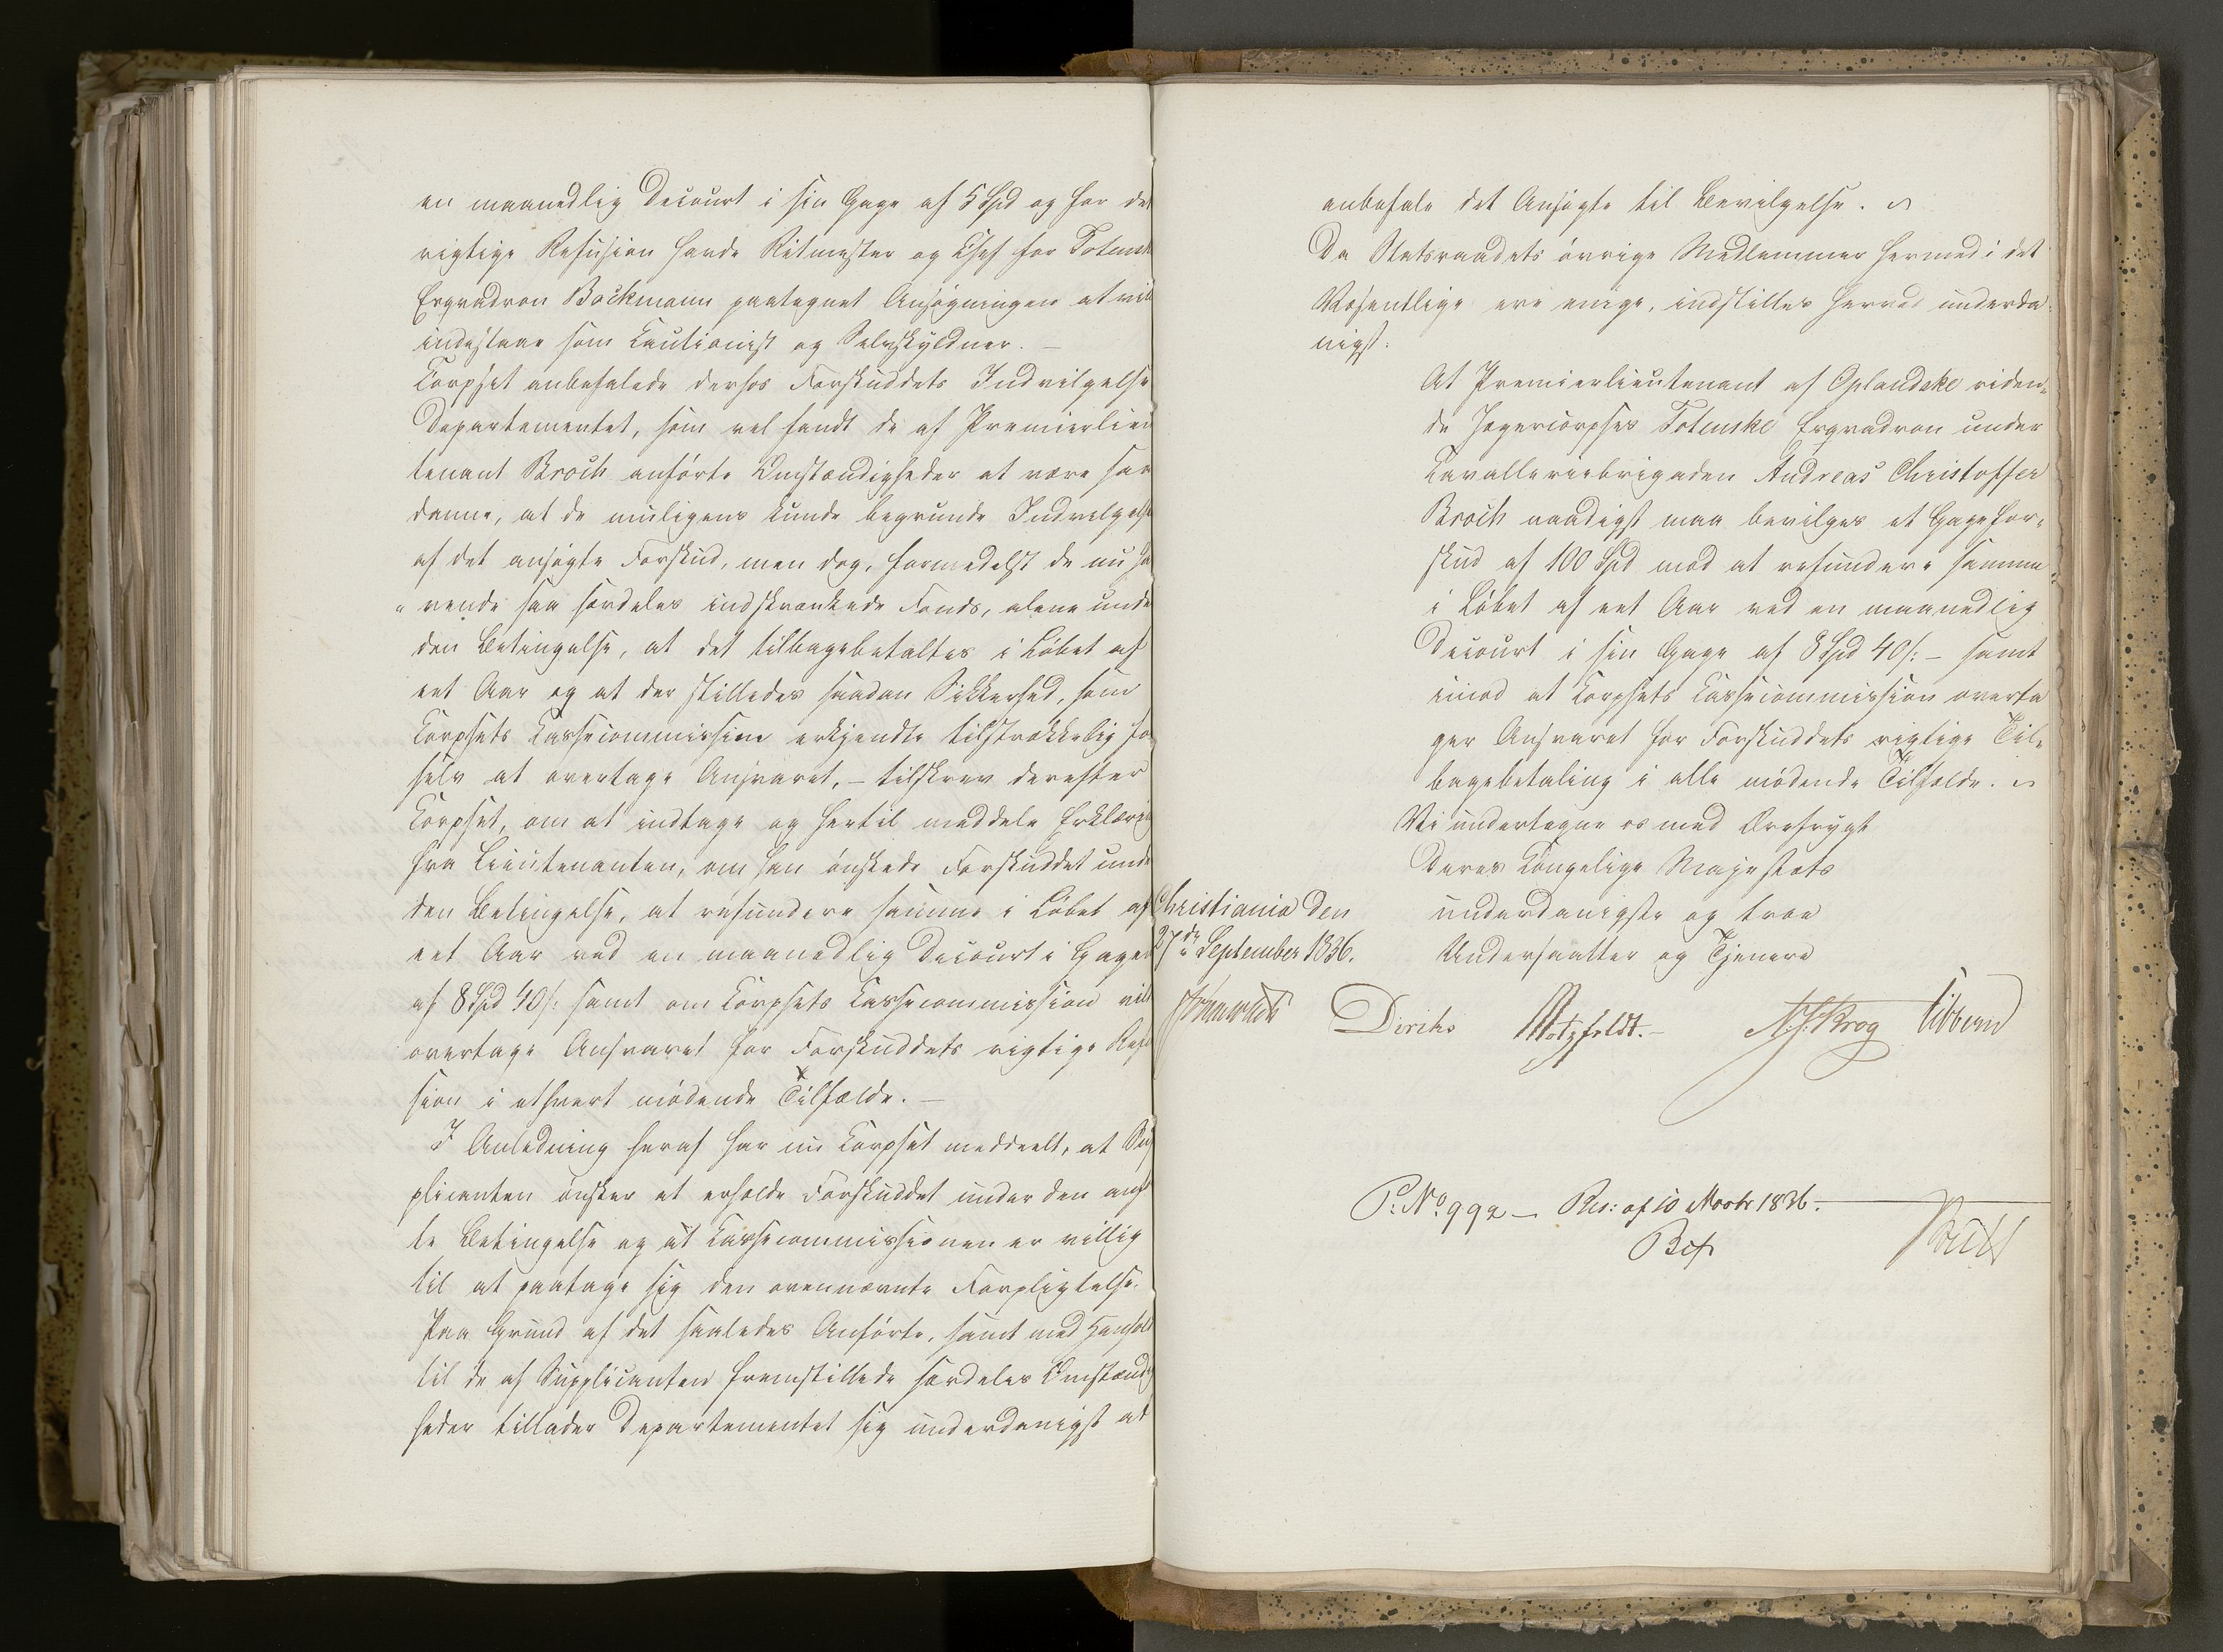 en maanedlig Decourt i sin Gage af 5 Spd og for det
rigtige Refusion havde Ritmester og Chef for Totenske
Esqvadron Bockmann paategnet Ansøgningen at vil
indestaae som Cautionist og Selvskyldner. –
Corpset anbefalede derhos Forskuddets Indvilgelse
Departementet, som vel fandt de af Premierlieu
tenant Broch anførte Omstændigheder at være saa
danne, at de muligens kunde begrunde Indvilgelse
af det ansøgte Forskud, men dog, formedelst de nu ha
vende saa særdeles indskrænkede Fonds, alene unde
den Betingelse, at det tilbagebetaltes i Løbet af
eet Aar og at der stilledes saadan Sikkerhed, som
Corpsets Cassecommission erkjendte tilstrækkelig fo
selv at overtage Ansvaret, – tilskrev derefter
Corpset, om at indtage og hertil meddele Erklæring
fra Lieutenanten, om han ønskede Forskuddet unde
den Betingelse, at refundere samme i Løbet af
eet Aar ved en maanedlig Decourt i Gagen
af 8 Spd 40 s: samt om Corpsets Cassecommission vild
overtage Ansvaret for Forskuddets rigtige Refu
sion i ethvert mødende Tilfælde. –
I Anledning heraf har nu Corpset meddeelt, at Sup
plicanten ønsker at erholde Forskuddet under den anf
te Betingelse og at Cassecommissionen er villig
til at paatage sig den ovennævnte Forpligtelse.
Paa Grund af det saaledes Anførte, samt med Henhold
til de af Supplicanten fremstillede særdeles Omstændig
heder tillader Departementet sig underdanigst at
anbefale det Ansøgte til Bevilgelse.
Da Statsraadets øvrige Medlemmer hermed i det
Væsentlige ere enige, indstilles herved underda-
nigst:
At Premierlieutenant af Oplandske riden-
de Jægercorpses Totenske Esqvadron under
Cavalleriebrigaden Andreas Christoffer
Broch naadigst maa bevilges et Gagefor-
skud af 100 Spd mod at refundere samme
i Løbet af eet Aar ved en maanedlig
Decourt i sin Gage af 8 Spd 40 s: – samt
imod at Corpsets Cassecommission overta
ger Ansvaret for Forskuddets rigtige Til-
bagebetaling i alle mødende Tilfælde.
Vi undertegne os med Ærefrygt
Deres Kongelige Majestæts
underdanigste og troe
Undersaatter og Tjenere
Christiania den
27de September 1836.
Diriks Motzfeldt. – N. J. Krog Vibbernd
P: No 992 – Res: af 10 Novbr 1836.
Bif